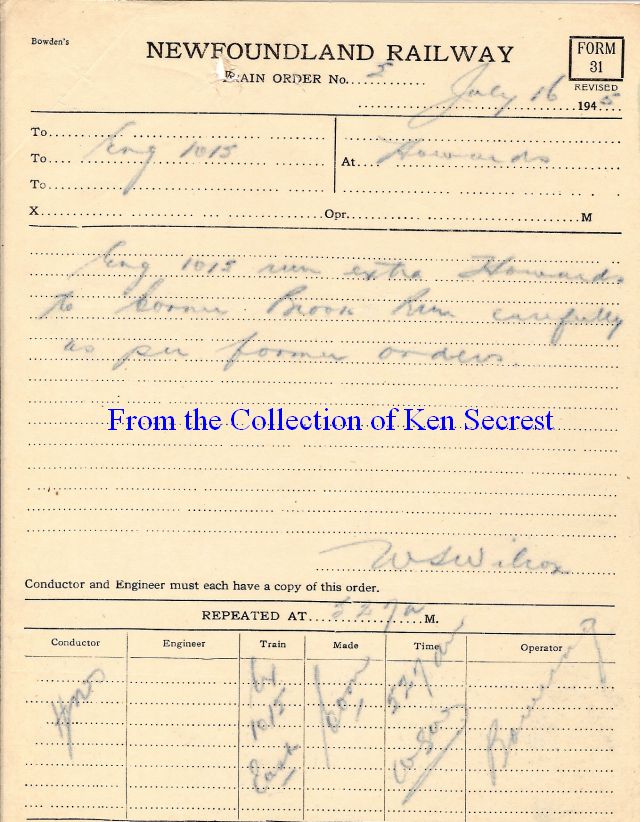 Bowden's
NEWFOUNDLAND RAILWAY
FORM
31
REVISED
TRAIN ORDER No. 5
July 16 1945
To
To Eng 1015
At Howards
To
X Opr. M
Eng 1015 run extra Howards
to Corner Brook Run carefully
as per former orders.
From the Collection of Ken Secrest
W S Wilcox
Conductor and Engineer must each have a copy of this order.
REPEATED AT 527a M.
Conductor Engineer Train Made Time Operator
Ex 1015 East Com 527am